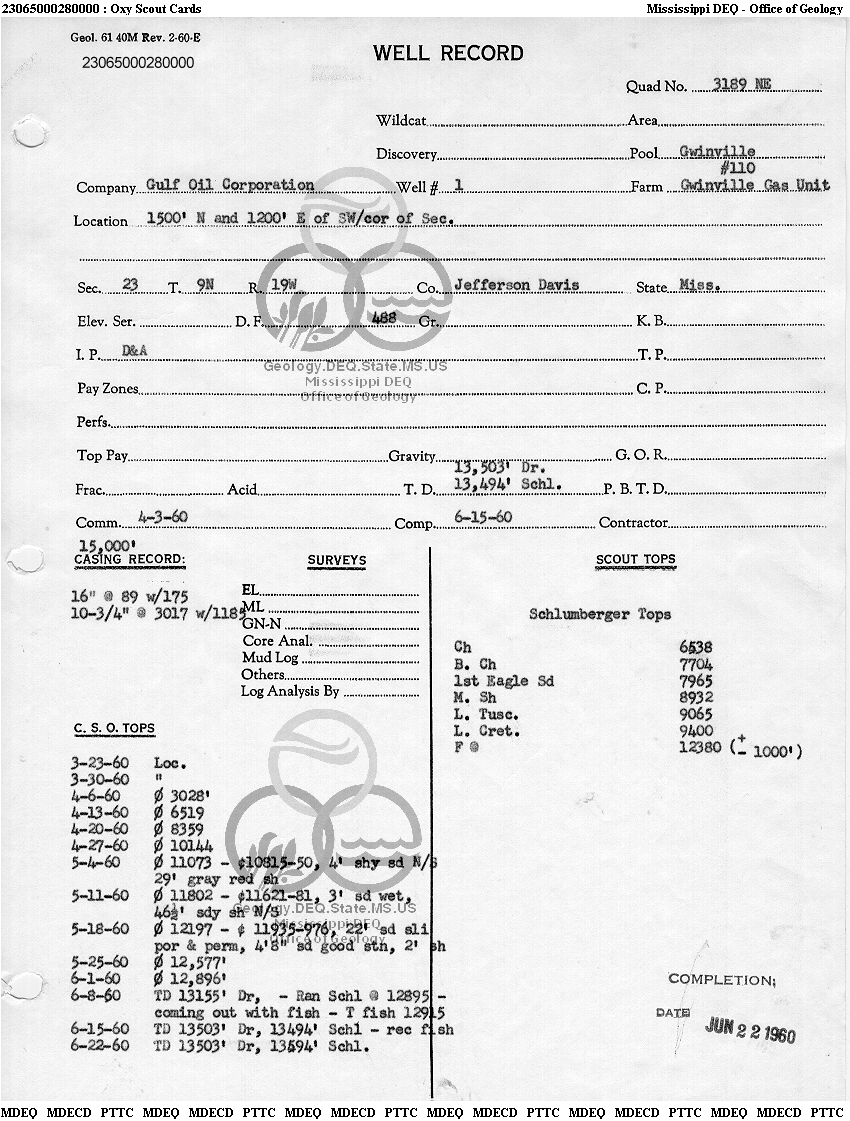 23065000280000 : Oxy Scout Cards Mississippi DEQ - Office of Geology
Geol. 61 40M Rev. 2-60-E
23065000280000
WELL RECORD
Quad No. 3189 NE
Wildcat Area
Discovery Pool Gwinville
#110
Company Gulf Oil Corporation Well # 1 Farm Gwinville Gas Unit
Location 1500' N and 1200' E of SW/cor of Sec.
Sec. 23 T. 9N R. 19W Co. Jefferson Davis State Miss.
Elev. Ser. D. F. 488 Gr. K. B.
I. P. D&A T. P.
Geology.DEQ.State.MS.US
Mississippi DEQ
Office of Geology
Pay Zones C. P.
Perfs.
Top Pay Gravity G. O. R.
13,503' Dr.
Frac. Acid T. D. 13,494' Schl. P. B. T. D.
Comm. 4-3-60 Comp. 6-15-60 Contractor
15,000'
CASING RECORD:
16" @ 89 w/175
10-3/4" @ 3017 w/1185
SURVEYS
EL
ML
GN-N
Core Anal.
Mud Log
Others
Log Analysis By
SCOUT TOPS
Schlumberger Tops
Ch 6538
B. Ch 7704
1st Eagle Sd 7965
M. Sh 8932
L. Tusc. 9065
L. Cret. 9400
F @ 12380 (± 1000')
C. S. O. TOPS
3-23-60 Loc.
3-30-60 "
4-6-60 Ø 3028'
4-13-60 Ø 6519
4-20-60 Ø 8359
4-27-60 Ø 10144
5-4-60 Ø 11073 - ¢10815-50, 4' shy sd N/S
29' gray red sh
5-11-60 Ø 11802 - ¢11621-81, 3' sd wet,
46½' sdy sh N/S
Geology.DEQ.State.MS.US
Mississippi DEQ
Office of Geology
5-18-60 Ø 12197 - ¢ 11935-976, 22' sd sli
por & perm, 4'8" sd good stn, 2' sh
5-25-60 Ø 12,577'
6-1-60 Ø 12,896'
6-8-60 TD 13155' Dr, - Ran Schl @ 12895 -
coming out with fish - T fish 12915
6-15-60 TD 13503' Dr, 13494' Schl - rec fish
6-22-60 TD 13503' Dr, 13594' Schl.
COMPLETION;
DATE JUN 22 1960
MDEQ MDECD PTTC MDEQ MDECD PTTC MDEQ MDECD PTTC MDEQ MDECD PTTC MDEQ MDECD PTTC MDEQ MDECD PTTC